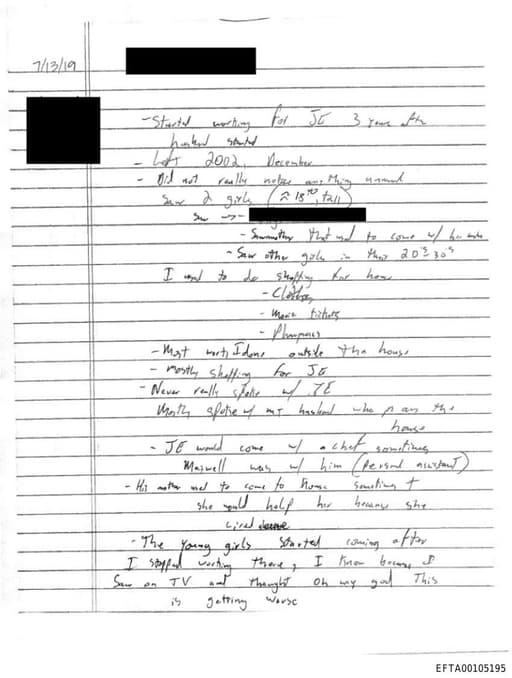 7/13/19
- Started working for JE 3 years after
husband started
- Left 2002, December
- Did not really notice anything unusual
Saw 2 girls (≈ 18ish, tall)
Saw →
- Samantha that used to come w/
- Saw other girls in their 20's-30's
I used to do shopping for home
- Clothes
- Movie tickets
- Most work I done outside the house
- mostly shopping for JE
- Never really spoke w/ JE
Mostly spoke w/ my husband who ran the
house
- JE would come w/ a chef sometimes
Maxwell was w/ him (personal assistant)
- His mother used to come to house sometimes +
she would help her because she
lived
- The young girls started coming after
I stopped working there, I know because I
Saw on TV and thought oh my god This
is getting worse
EFTA00105195